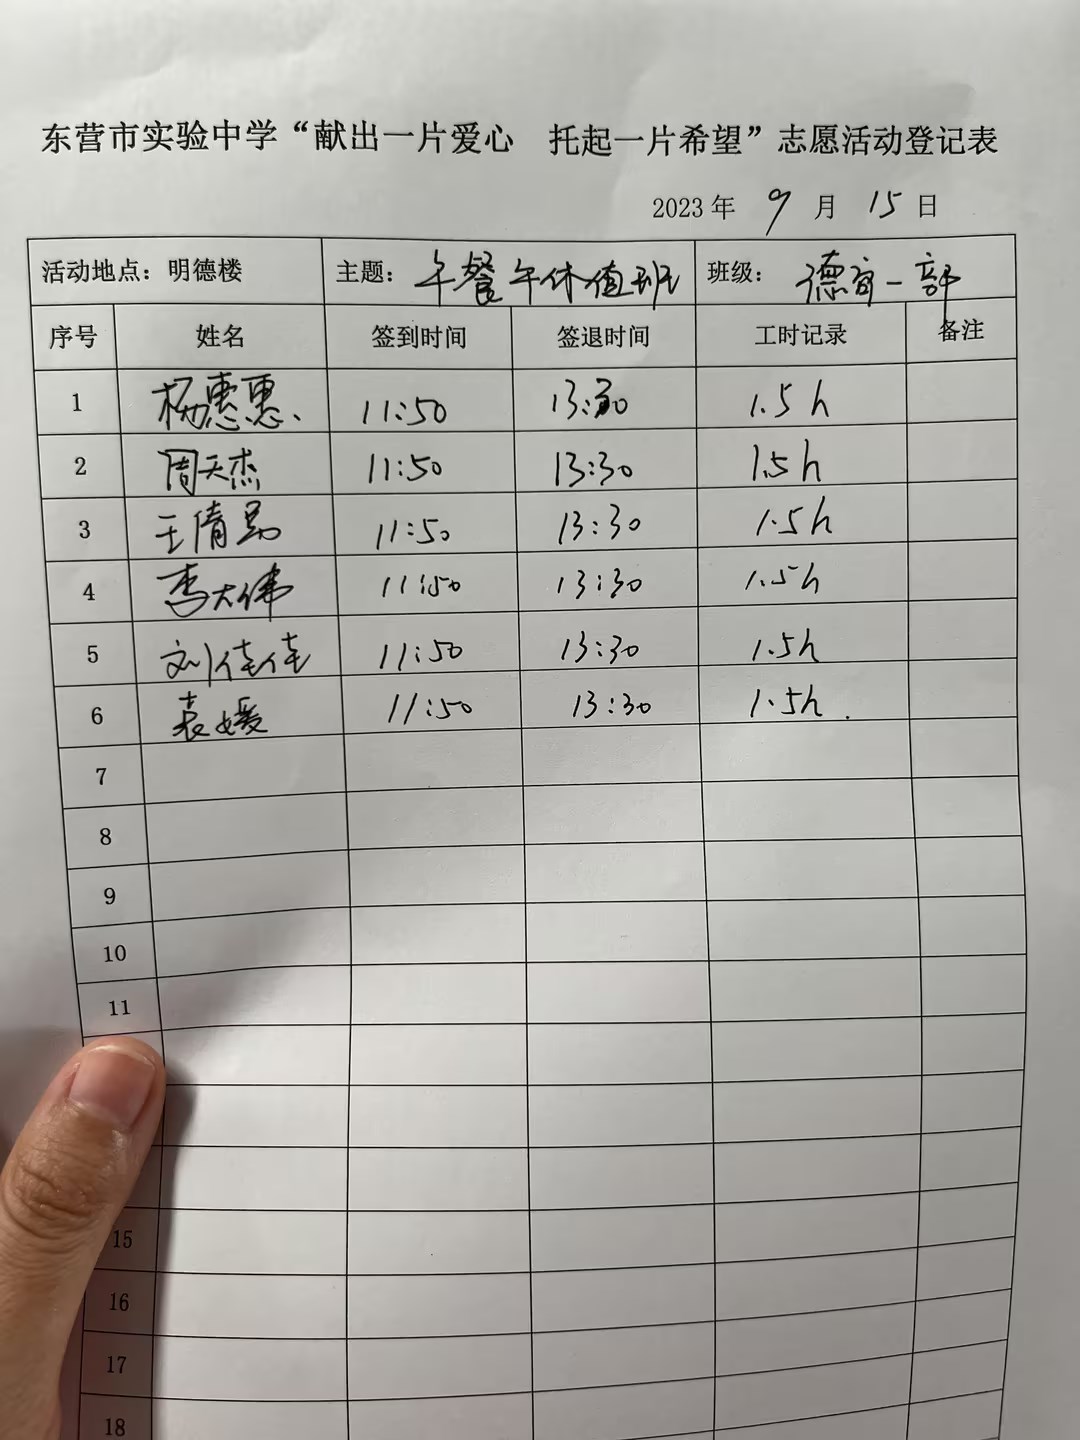 东营市实验中学“献出一片爱心 托起一片希望”志愿活动登记表
2023年 9 月 15 日
活动地点：明德楼 主题：午餐午休值班 班级：德育一部
序号 姓名 签到时间 签退时间 工时记录 备注
1 杨惠惠 11:50 13:30 1.5h
2 周天杰 11:50 13:30 1.5h
3 王倩 11:50 13:30 1.5h
4 李大伟 11:50 13:30 1.5h
5 刘佳佳 11:50 13:30 1.5h
6 袁媛 11:50 13:30 1.5h.
7
8
9
10
11
15
16
17
18